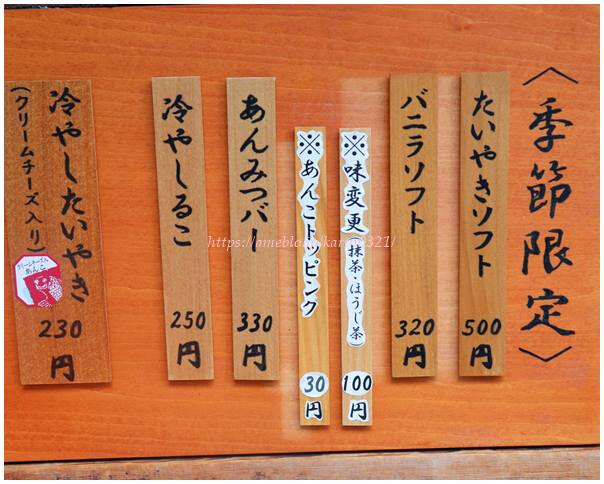 〈季節限定〉
たいやきソフト
500
円
バニラソフト
320
円
※味変更
(抹茶・ほうじ茶)
100
円
※あんこトッピング
30
円
あんみつバー
330
円
冷やしるこ
250
円
冷やしたいやき
(クリームチーズ入り)
230
円
クリームチーズ入
あんこ